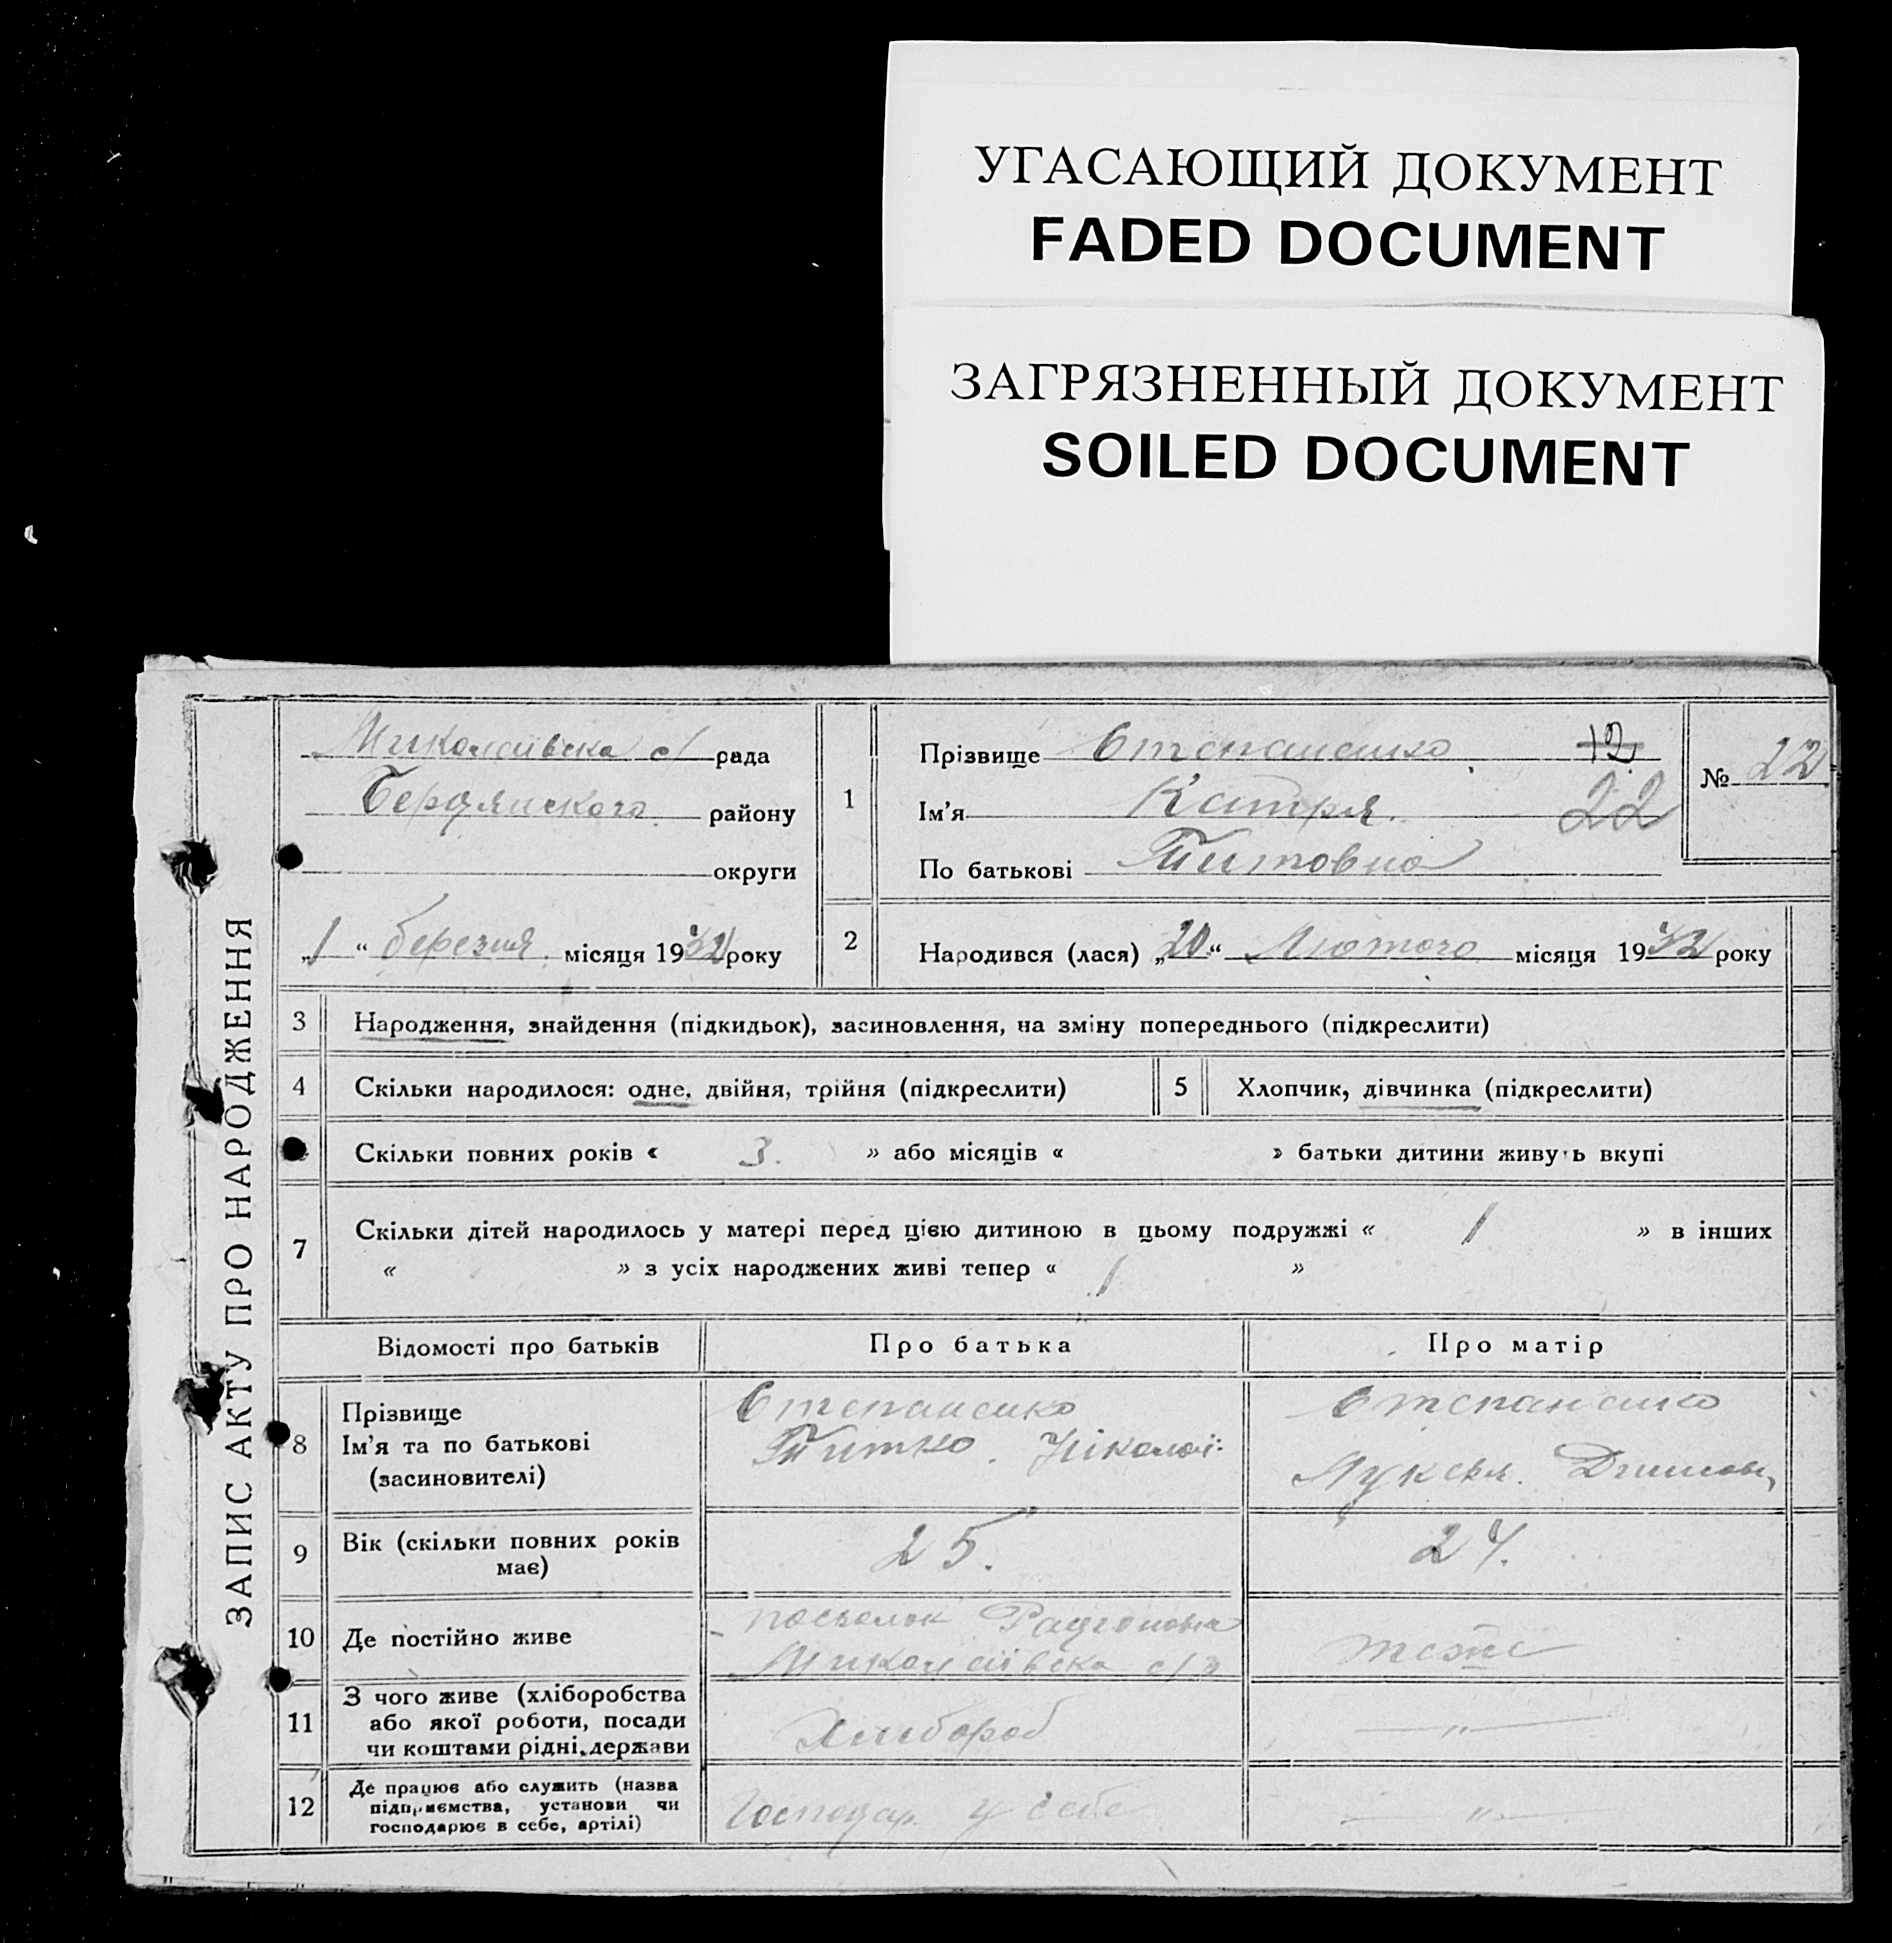 УГАСАЮЩИЙ ДОКУМЕНТ
FADED DOCUMENT
ЗАГРЯЗНЕННЫЙ ДОКУМЕНТ
SOILED DOCUMENT
ЗАПИС АКТУ ПРО НАРОДЖЕННЯ
Миколаївська с/ рада
Бердянского району
округи
„1“ березня місяця 1932 року
1
Прізвище Степаненко 12
Ім'я Катря 22
По батькові Титовна
№ 22
2 Народився (лася) „20“ Лютого місяця 1932 року
3 Народження, знайдення (підкидьок), засиновлення, на зміну попереднього (підкреслити)
4 Скільки народилося: одне, двійня, трійня (підкреслити) 5 Хлопчик, дівчинка (підкреслити)
Скільки повних років « 3. » або місяців « » батьки дитини живуть вкупі
7 Скільки дітей народилось у матері перед цією дитиною в цьому подружжі « 1 » в інших
« » з усіх народжених живі тепер « 1 »
Відомості про батьків Про батька Про матір
8 Прізвище
Ім'я та по батькові
(засиновителі)
Степаненко
Титко
Степаненко
9 Вік (скільки повних років
має)
25. 24.
10 Де постійно живе
посьолок
Миколаївська с/р
тоже
11 З чого живе (хліборобства
або якої роботи, посади
чи коштами рідні, держави
Хлибороб — „ —
12 Де працює або служить (назва
підприємства, установи чи
господарює в себе, артілі)
Господар. у себе — „ —